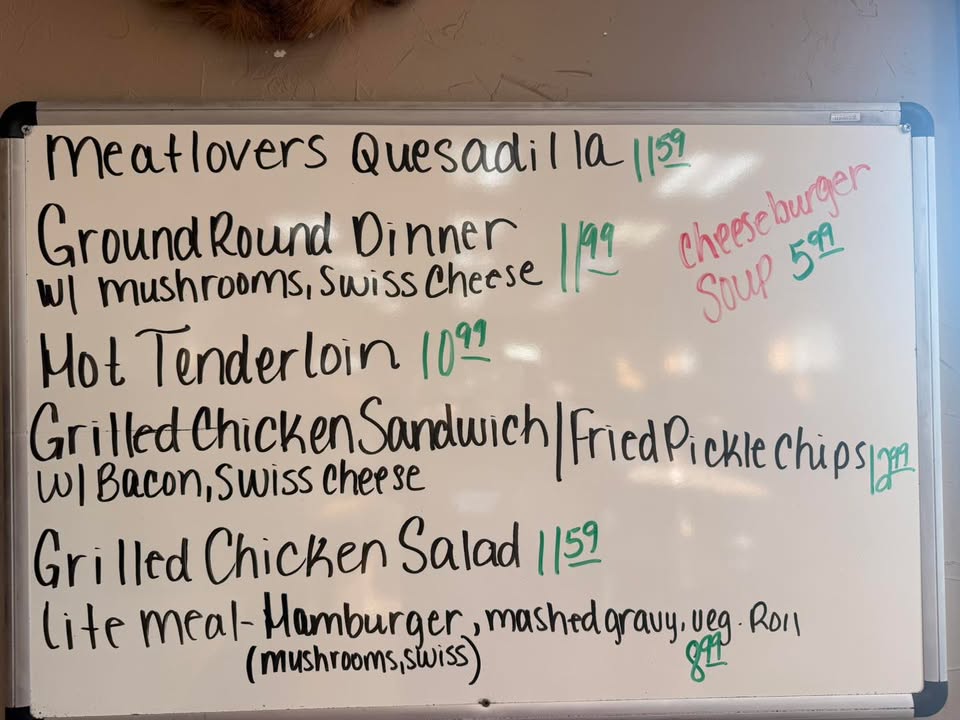 Meatlovers Quesadilla 11 59
Ground Round Dinner 11 99
w/ mushrooms, Swiss Cheese
Cheeseburger
Soup 5 99
Hot Tenderloin 10 99
Grilled Chicken Sandwich / Fried Pickle Chips 12 99
w/ Bacon, Swiss Cheese
Grilled Chicken Salad 11 59
Lite meal - Hamburger, mashed gravy, veg. Roll
(mushrooms, swiss) 8 99